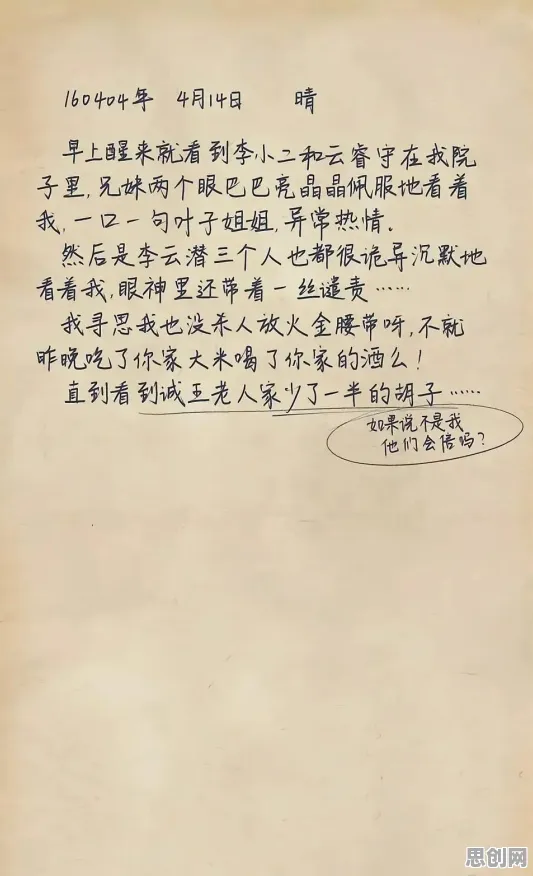 160404年 4月14日 晴
早上醒来就看到李小二和云睿守在我院
子里,兄妹两个眼巴巴亮晶晶佩服地看着
我,一口一句叶子姐姐,异常热情。
然后是李云潜三个人也都很诡异沉默地
看着我,眼神里还带着一丝谴责……
我寻思我也没杀人放火金腰带呀,不就
昨晚吃了你家大米喝了你家的酒么!
直到看到诚王老人家少了一半的胡子……
如果说不是我
他们会信吗?
思创网